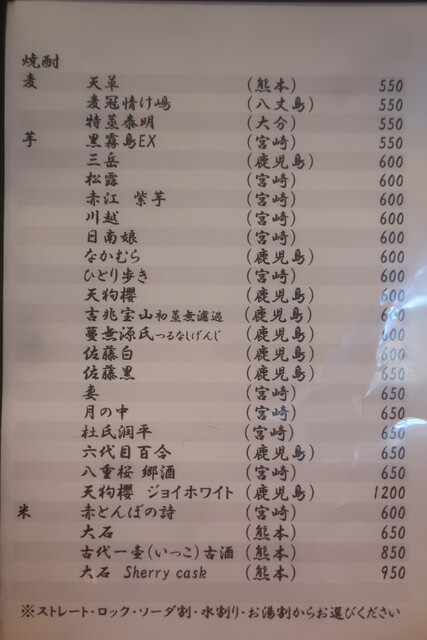 焼酎
麦 天草 (熊本) 550
麦冠情け嶋 (八丈島) 550
特蒸泰明 (大分) 550
芋 黒霧島EX (宮崎) 550
三岳 (鹿児島) 600
松露 (宮崎) 600
赤江 紫芋 (宮崎) 600
川越 (宮崎) 600
日南娘 (宮崎) 600
なかむら (鹿児島) 600
ひとり歩き (宮崎) 600
天狗櫻 (鹿児島) 600
吉兆宝山初蒸無濾過 (鹿児島) 600
蔓無源氏つるなしげんじ (鹿児島) 600
佐藤白 (鹿児島) 600
佐藤黒 (鹿児島) 650
妻 (宮崎) 650
月の中 (宮崎) 650
杜氏潤平 (宮崎) 650
六代目百合 (鹿児島) 650
八重桜 郷酒 (宮崎) 650
天狗櫻 ジョイホワイト (鹿児島) 1200
米 赤とんぼの詩 (宮崎) 600
大石 (熊本) 650
古代一壺(いっこ)古酒 (熊本) 850
大石 Sherry cask (熊本) 950
※ストレート・ロック・ソーダ割・水割り・お湯割からお選びください